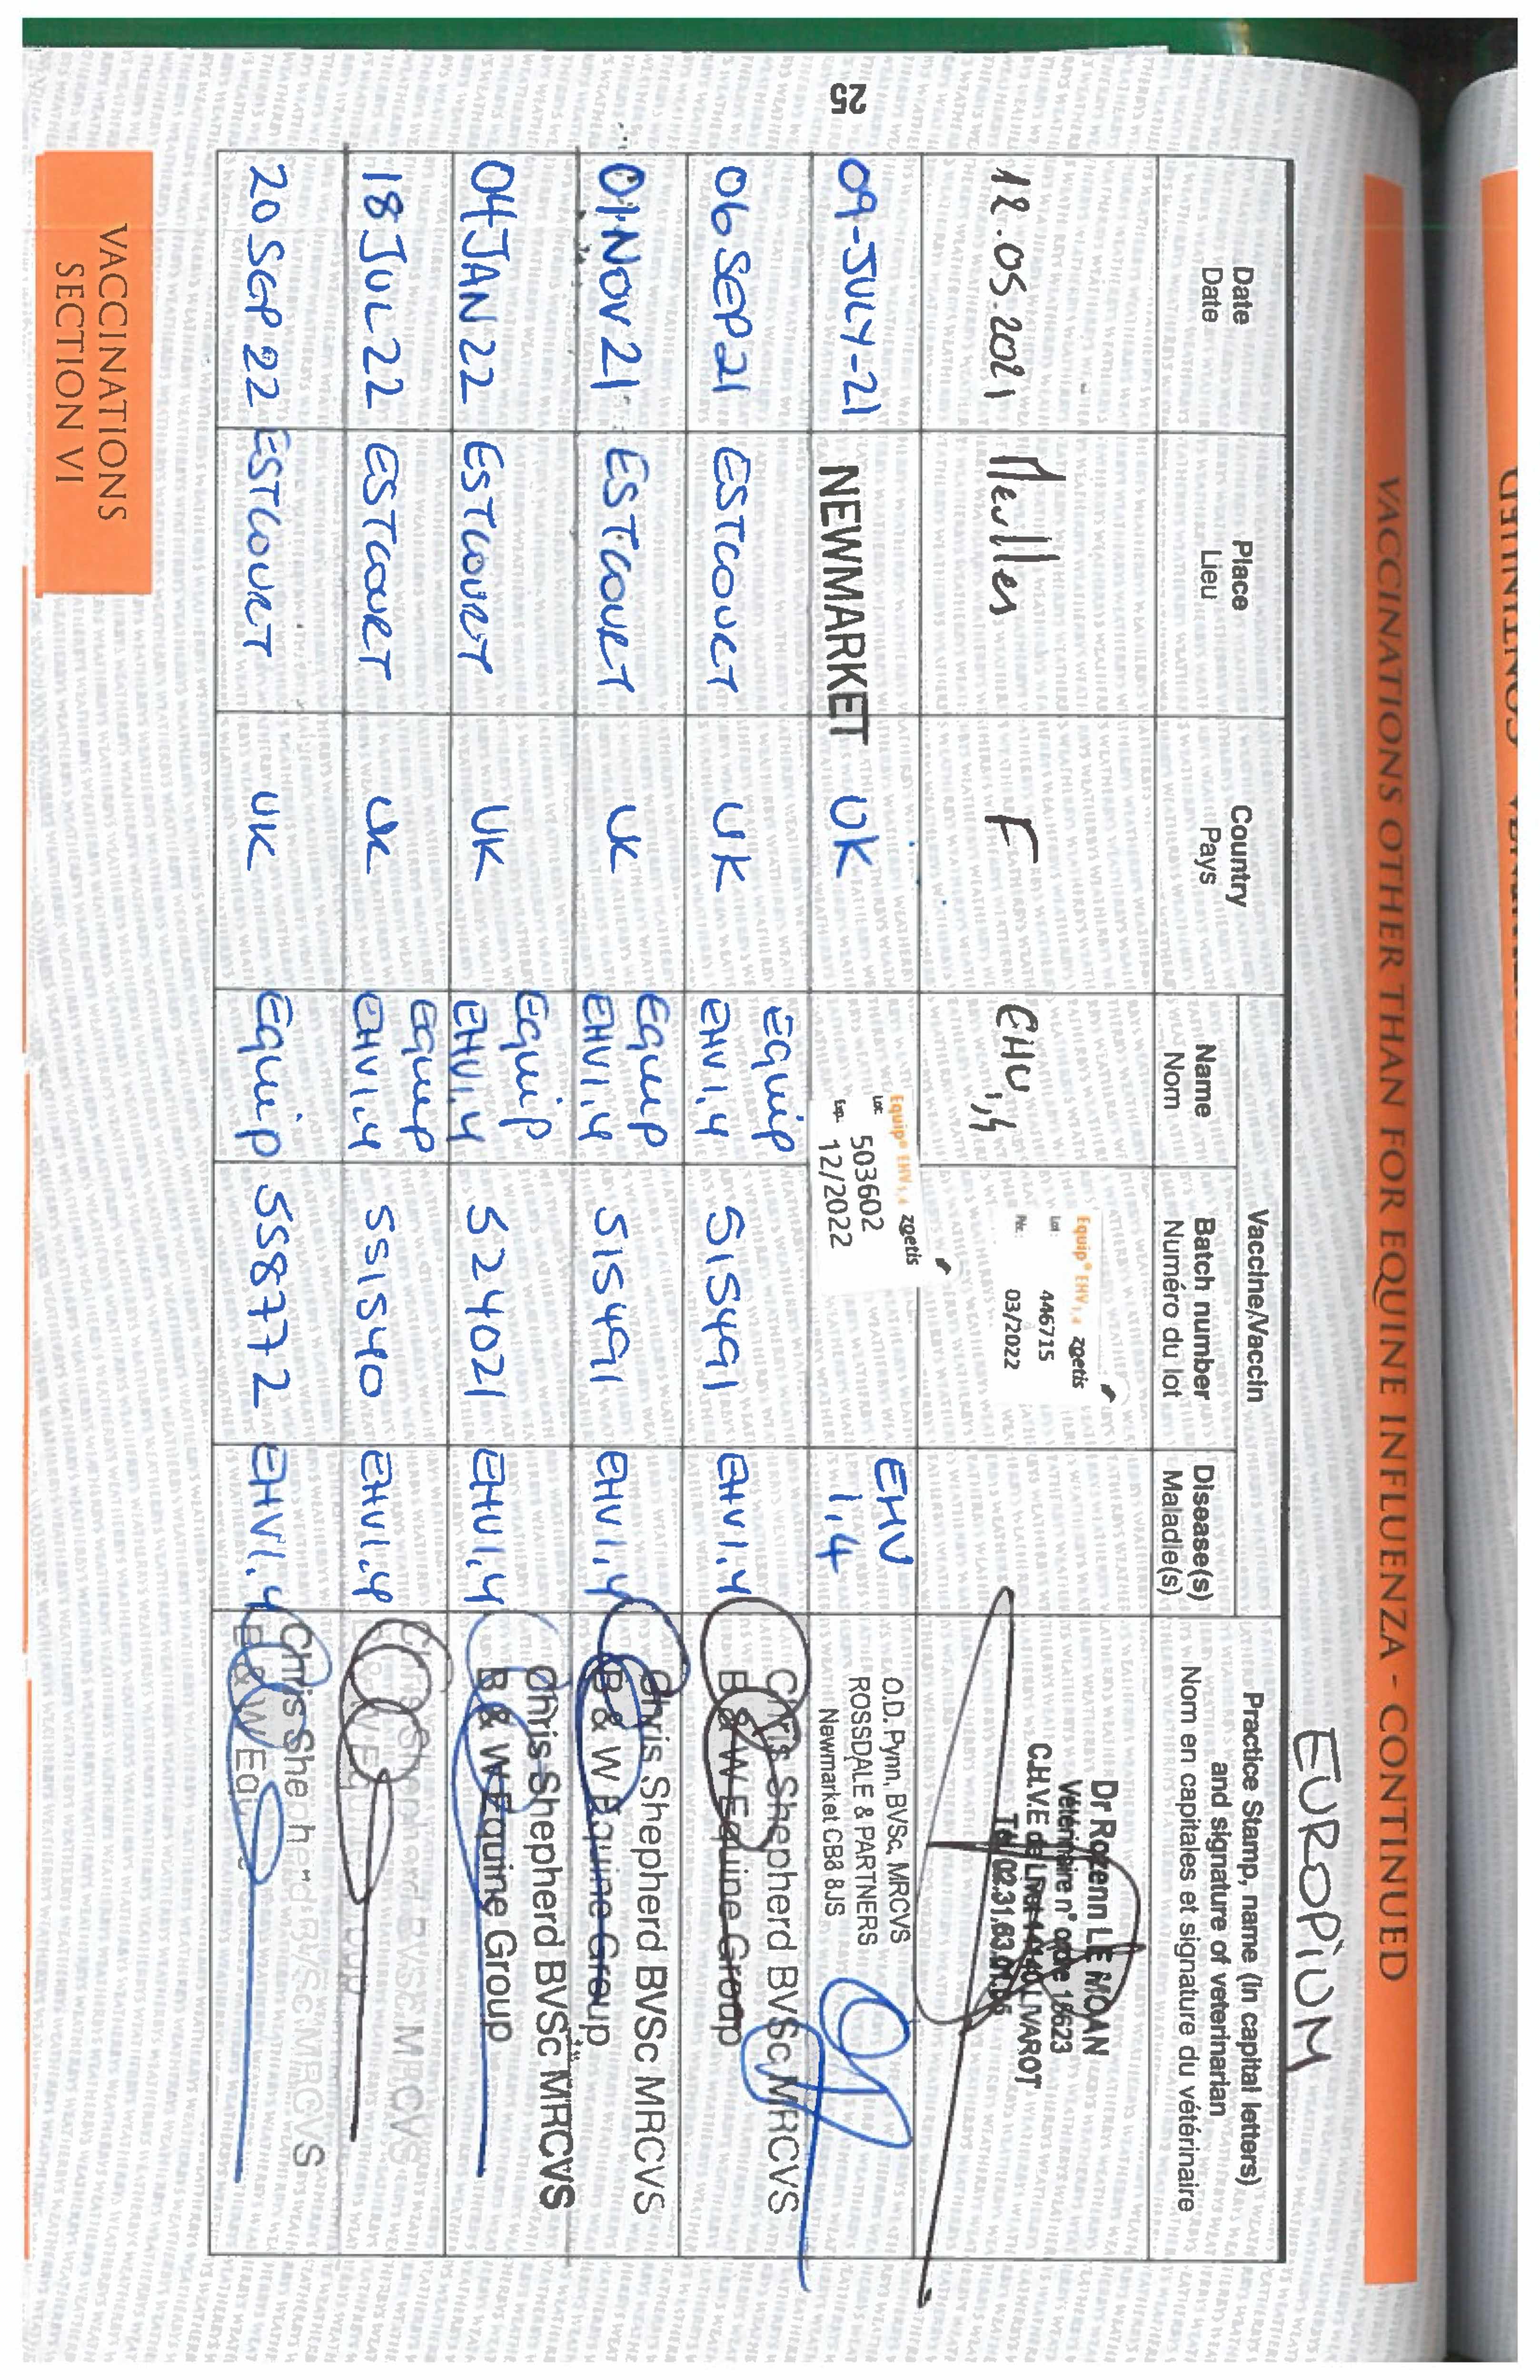 EUROPIUM
VACCINATIONS OTHER THAN FOR EQUINE INFLUENZA - CONTINUED
Date
Date
Place
Lieu
Country
Pays
Vaccine/Vaccin
Name
Nom
Batch number
Numéro du lot
Disease(s)
Maladie(s)
Practice Stamp, name (in capital letters)
and signature of veterinarian
Nom en capitales et signature du vétérinaire
12.05.2021
F
EHV1,4
Equip® EHV1,4 zoetis
Lot: 446715
Per.: 03/2022
Dr Rozenn LE MOAN
Vétérinaire n° ordre 15623
C.H.V.E de Livarot 14140 LIVAROT
Tél 02.31.63.01.
09-JULY-21
NEWMARKET
UK
Equip® EHV1,4 zoetis
Lot: 503602
Exp. 12/2022
EHV
1,4
O.D. Pynn, BVSc, MRCVS
ROSSDALE & PARTNERS
Newmarket CB8 8JS
06 SEP 21 ESTCOURT UK Equip
EHV1,4 515491 EHV1,4
Chris Shepherd BVSc MRCVS
B & W Equine Group
01 NOV 21 ESTCOURT UK Equip
EHV1,4 515491 EHV1,4
Chris Shepherd BVSc MRCVS
B & W Equine Group
04 JAN 22 ESTCOURT UK Equip
EHV1,4 524021 EHV1,4
Chris Shepherd BVSc MRCVS
B & W Equine Group
18 JUL 22 ESTCOURT UK Equip
EHV1,4 551540 EHV1,4
Chris Shepherd BVSc MRCVS
20 SEP 22 ESTCOURT UK Equip 558772 EHV1,4
Chris Shepherd BVSc MRCVS
B & W Equine
VACCINATIONS
SECTION VI
25